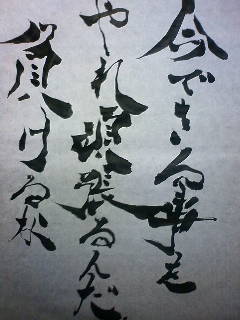 今できる事を
やれ頑張るんだ
負けるな